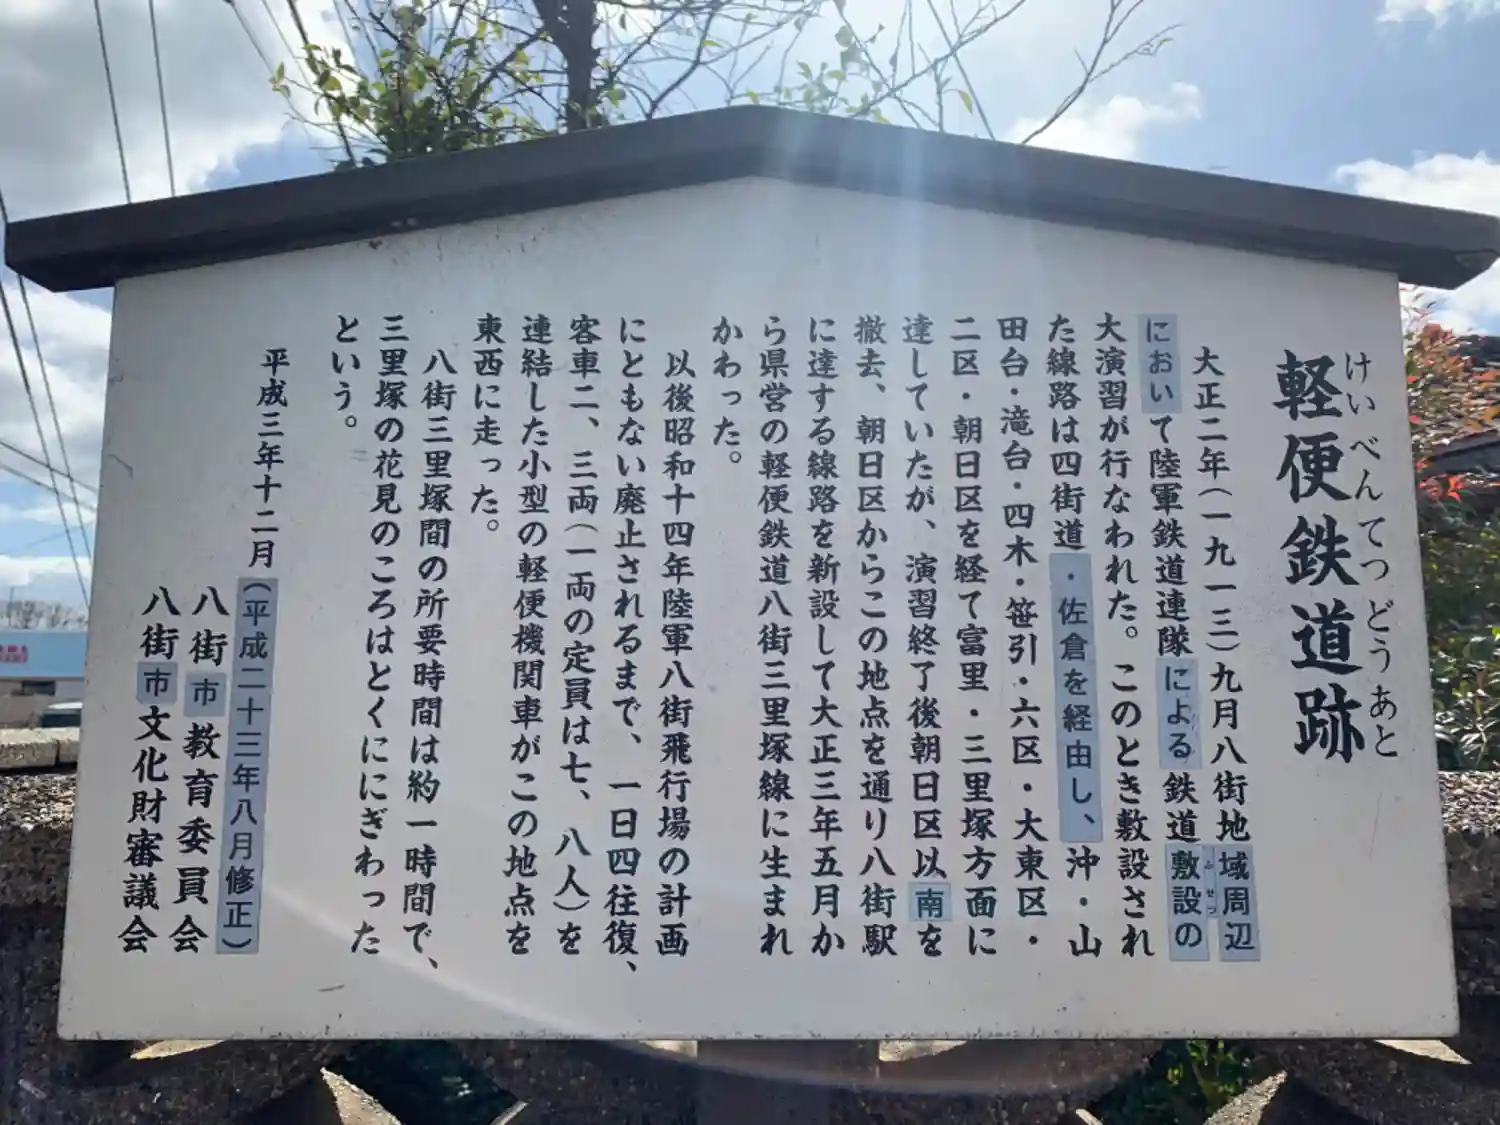 軽便鉄道跡
けいべんてつどうあと
大正二年(一九一三)九月八街地域周辺
において陸軍鉄道連隊による鉄道敷設の
ふせつ
大演習が行なわれた。このとき敷設され
た線路は四街道・佐倉を経由し、沖・山
田台・滝台・四木・笹引・六区・大東区・
二区・朝日区を経て富里・三里塚方面に
達していたが、演習終了後朝日区以南を
撤去、朝日区からこの地点を通り八街駅
に達する線路を新設して大正三年五月か
ら県営の軽便鉄道八街三里塚線に生まれ
かわった。
以後昭和十四年陸軍八街飛行場の計画
にともない廃止されるまで、一日四往復、
客車二、三両(一両の定員は七、八人)を
連結した小型の軽便機関車がこの地点を
東西に走った。
八街三里塚間の所要時間は約一時間で、
三里塚の花見のころはとくににぎわった
という。
平成三年十二月(平成二十三年八月修正)
八街市教育委員会
八街市文化財審議会